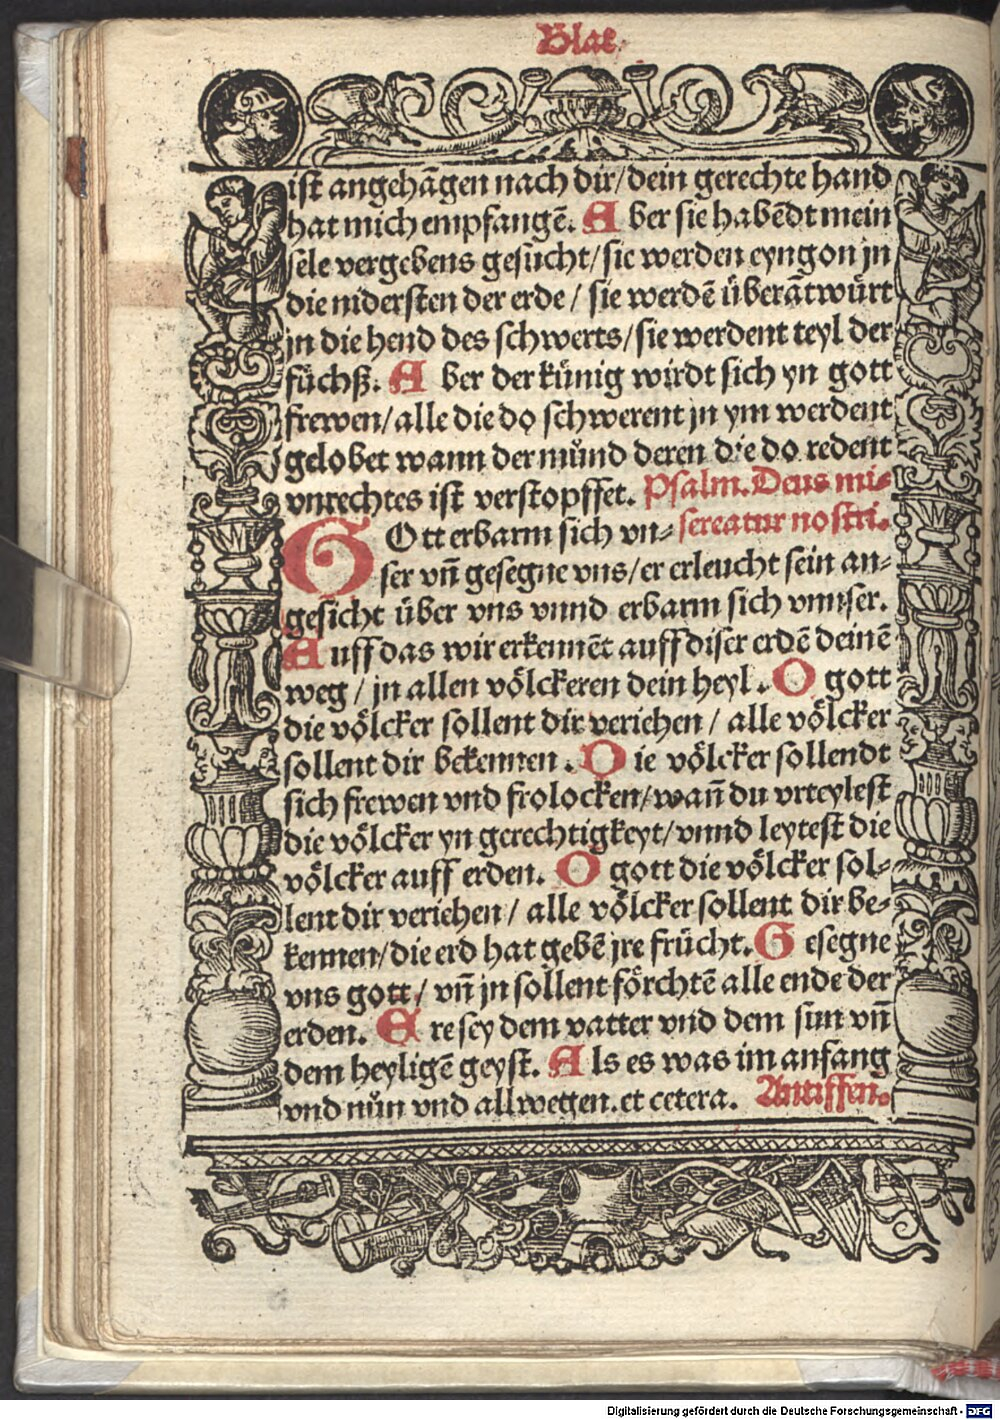 Blat
ist angehãgen nach dir/dein gerechte hand
hat mich empfangẽ. Aber sie habẽdt mein
sele vergebens gesucht/sie werden eyngon jn
die nidersten der erde / sie werdẽ überãtwürt
jn die hend des schwerts/sie werdent teyl der
füchß. Aber der künig wirdt sich yn gott
frewen/alle die do schwerent jn ym werdent
gelobet wann der můnd deren die do redent
vnrechtes ist verstopffet. Psalm. Deus mi⸗
GOtt erbarm sich vn⸗ sereatur nostri.
ser vñ gesegne vns/er erleucht sein an⸗
gesicht über vns vnnd erbarm sich vnnser.
Auff das wir erkennẽt auff diser erdẽ deinẽ
weg / jn allen völckeren dein heyl. O gott
die völcker sollent dir veriehen / alle völcker
sollent dir bekennen. Die völcker sollendt
sich frewen vnd frolocken/wañ du vrteylest
die völcker yn gerechtigkeyt/vnnd leytest die
völcker auff erden. O gott die völcker sol⸗
lent dir veriehen / alle völcker sollent dir be⸗
kennen/die erd hat gebẽ jre frücht. Gesegne
vns gott/ vñ jn sollent förchtẽ alle ende der
erden. Ere sey dem vatter vnd dem sun vñ
dem heyligẽ geyst. Als es was im anfang
vnd nůn vnd allwegen. et cetera. Antiffen.
Digitalisierung gefördert durch die Deutsche Forschungsgemeinschaft - DFG